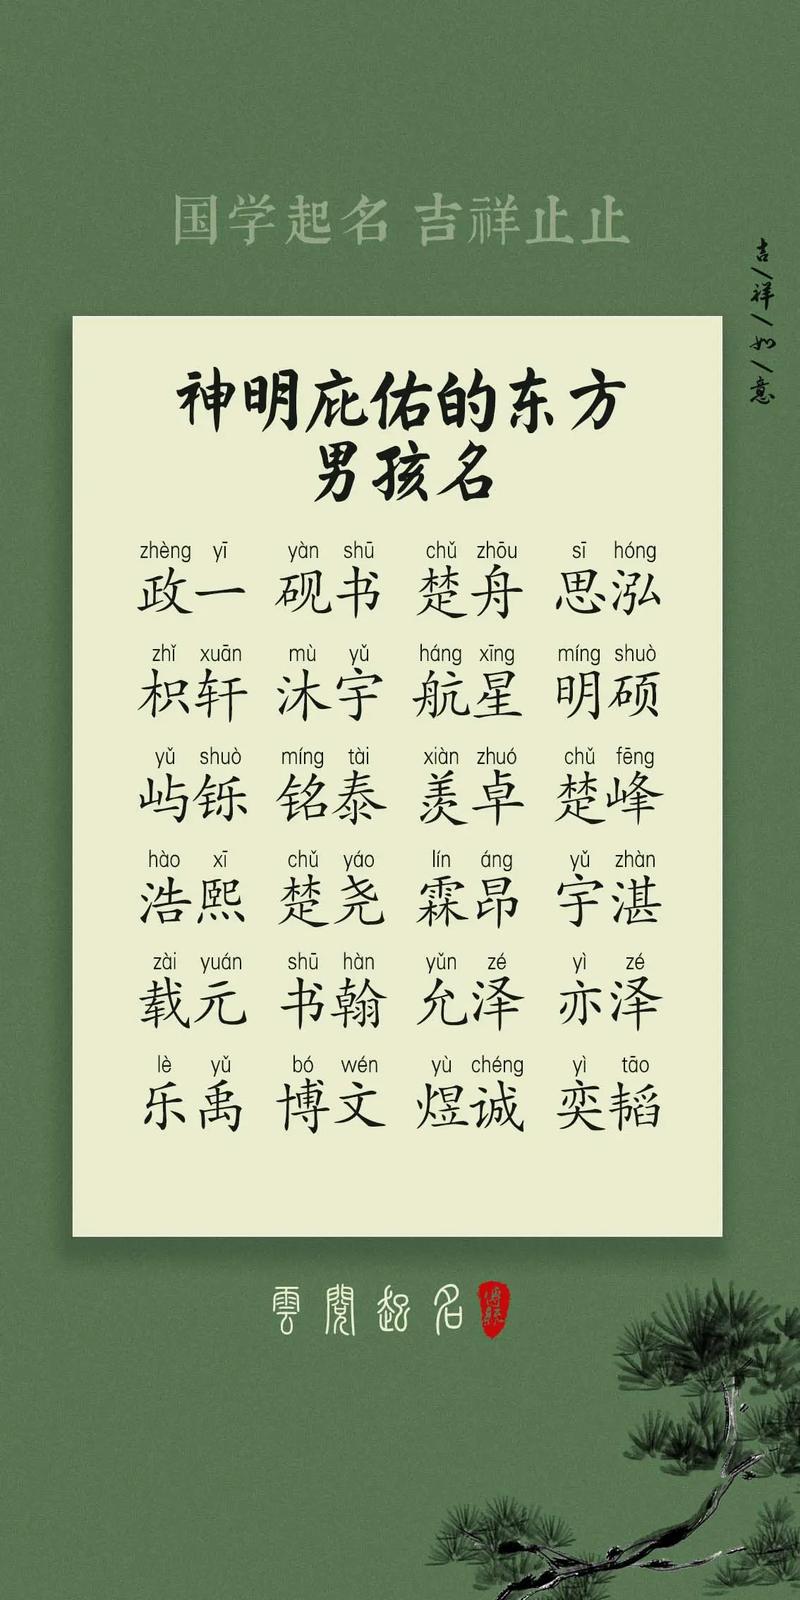 国学起名 吉祥止止
吉祥如意
神明庇佑的东方
男孩名
zhèng yī yàn shū chǔ zhōu sī hóng
政一 砚书 楚舟 思泓
zhǐ xuān mù yǔ háng xīng míng shuò
枳轩 沐宇 航星 明硕
yǔ shuò míng tài xiàn zhuó chǔ fēng
屿铄 铭泰 羡卓 楚峰
hào xī chǔ yáo lín áng yǔ zhàn
浩熙 楚尧 霖昂 宇湛
zài yuán shū hàn yǔn zé yì zé
载元 书翰 允泽 亦泽
lè yǔ bó wén yù chéng yì tāo
乐禹 博文 煜诚 奕韬
雲閲起名
傳統